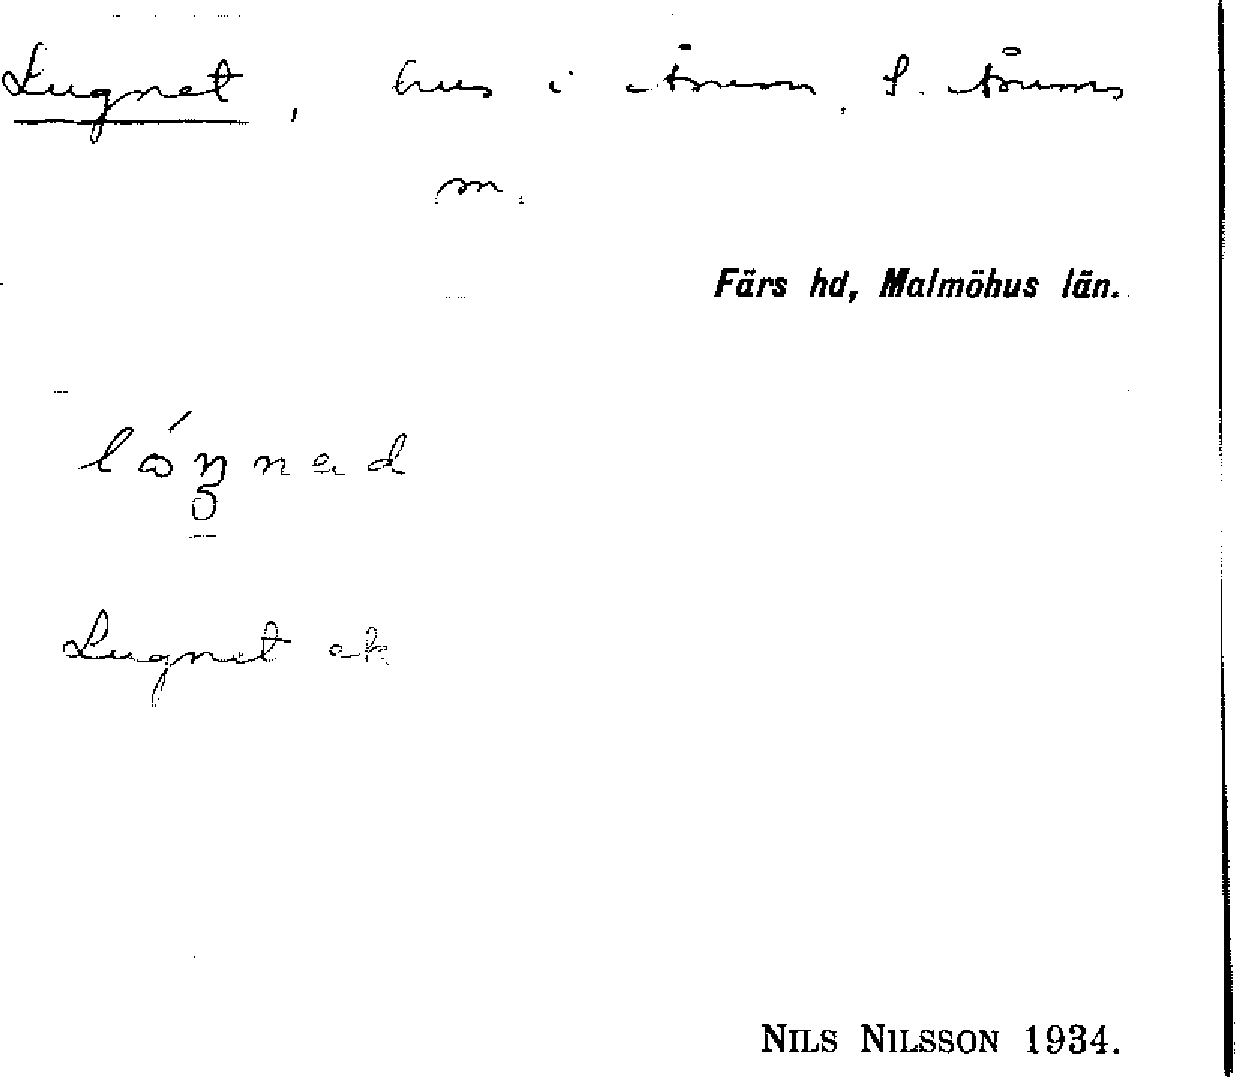 Lugnet, hus i Årum, S. Åsums
m.
Färs hd, Malmöhus län.
Lugnet ek
NILS NILSSON 1934.